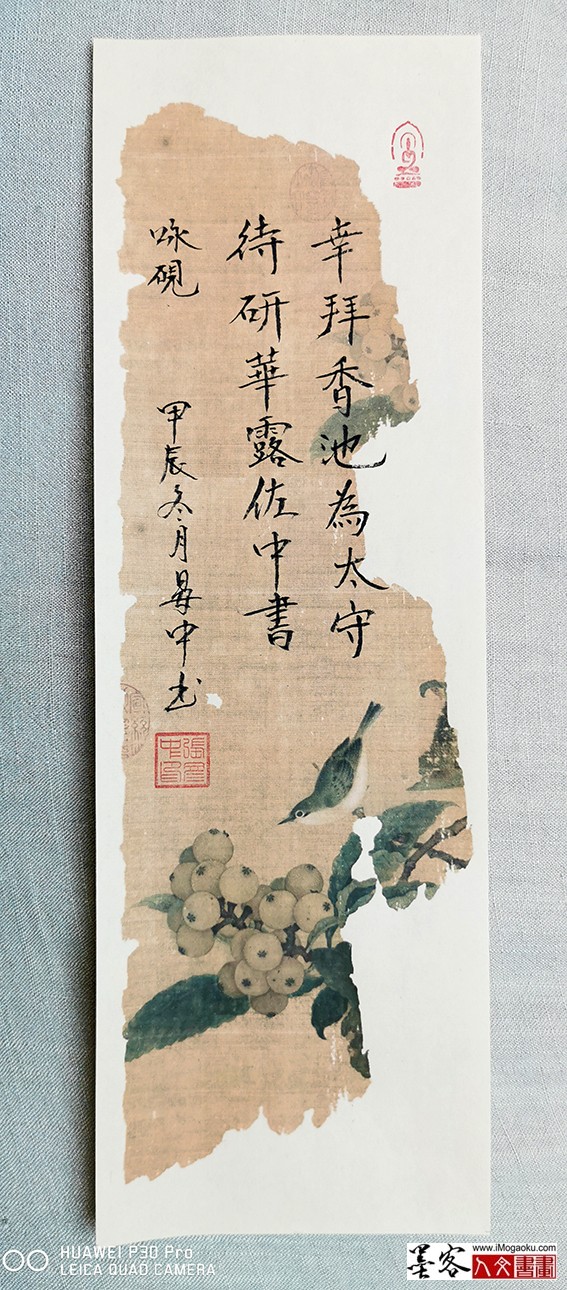 幸拜香池為太守
待研華露佐中書
咏硯
甲辰冬月晏中书
HUAWEI P30 Pro
LEICA QUAD CAMERA
www.iMogaoku.com
墨客
人文書畫